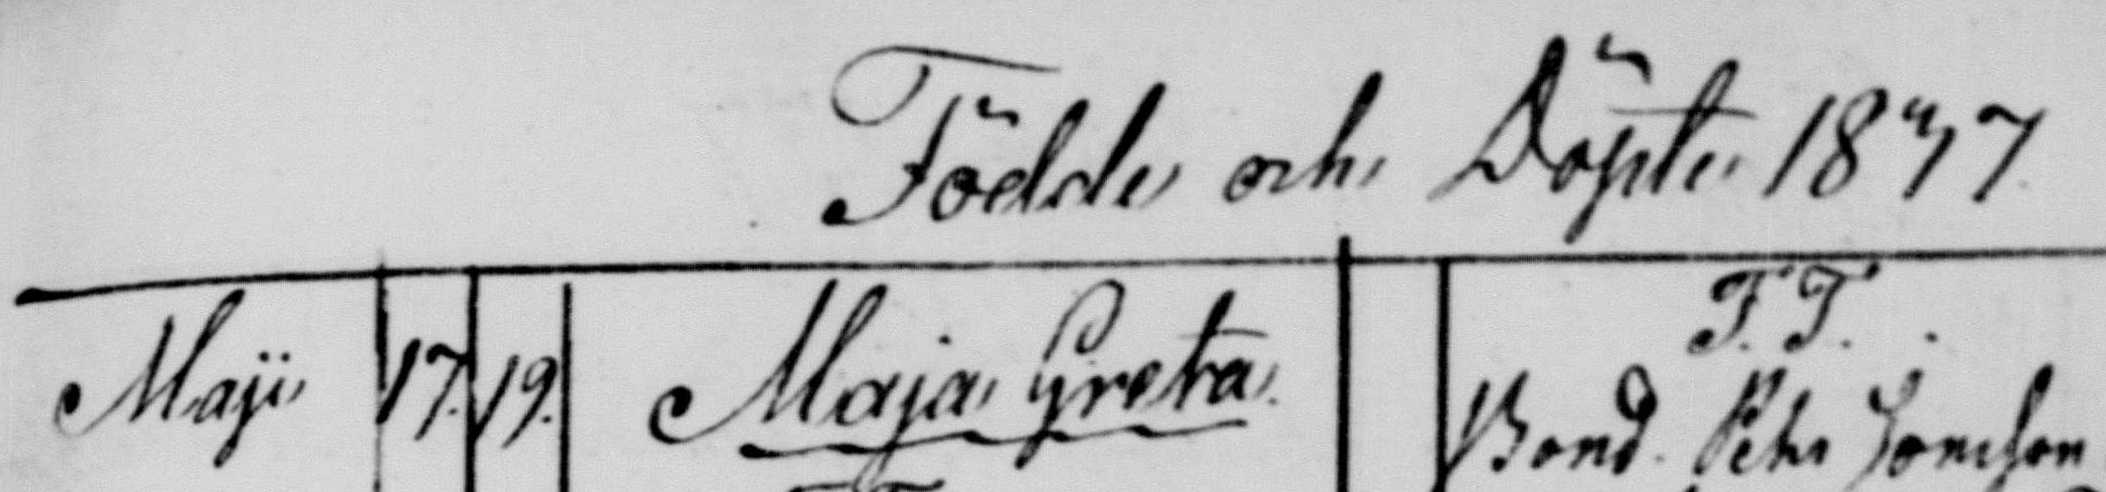 Födde och Döpte 1847
Maji 17. 19. Maja Greta. F. F.
Bond. Pehr Jonsson